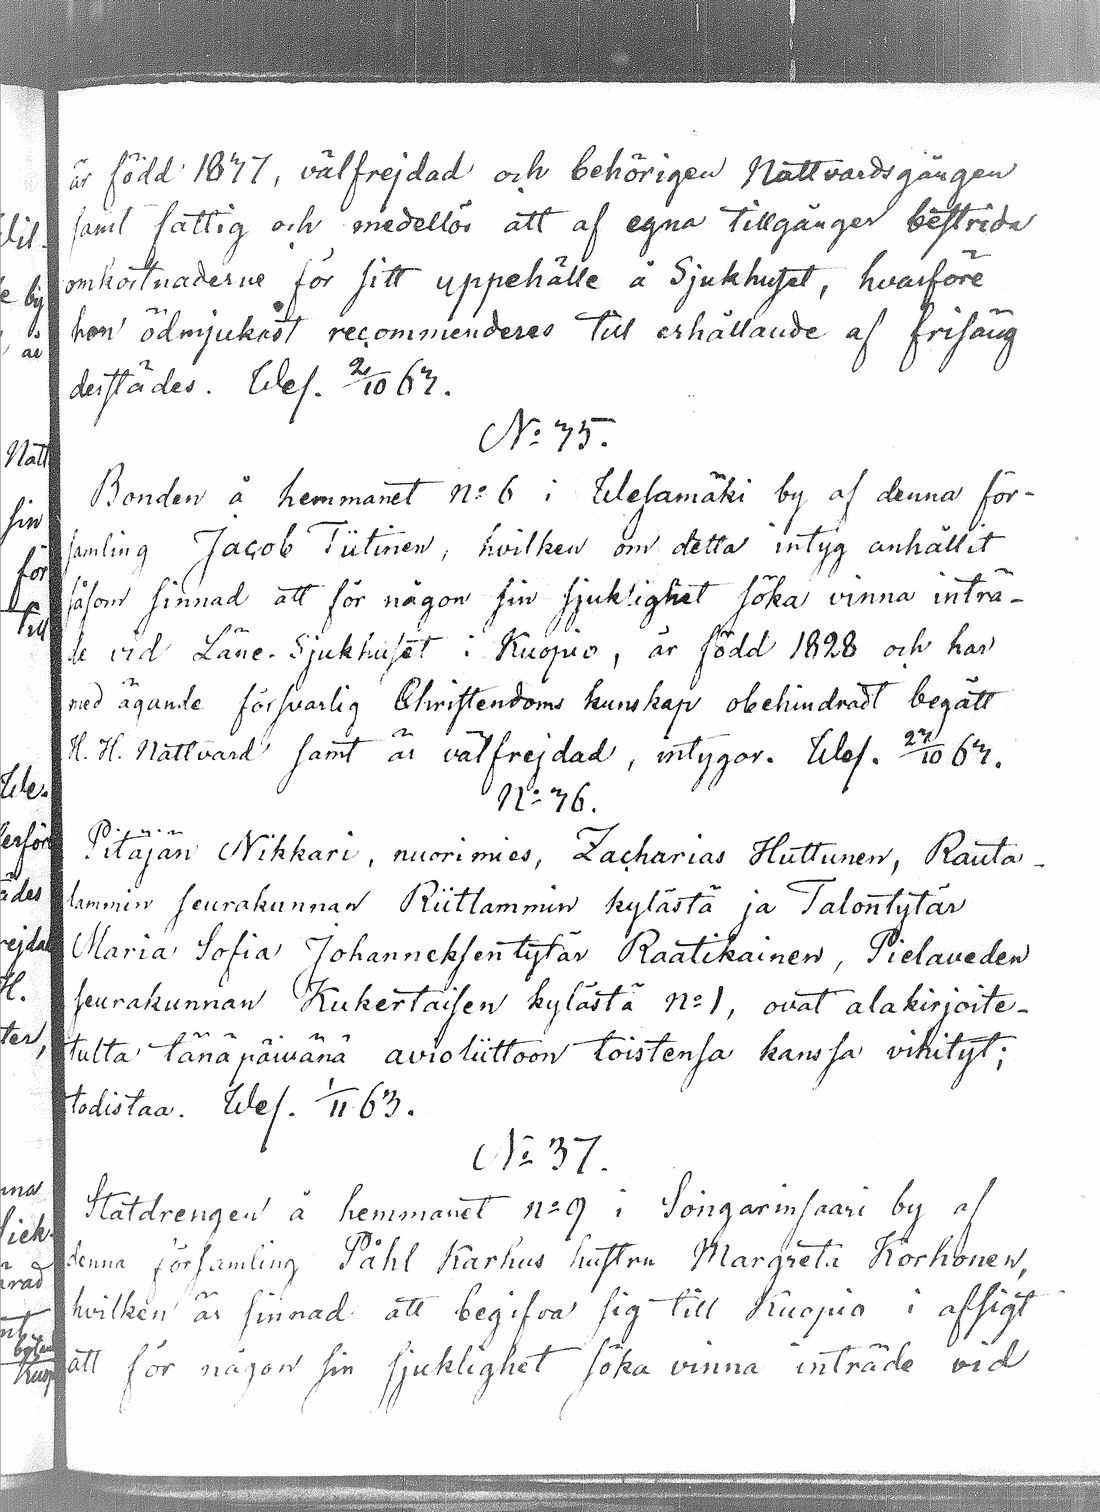 är född 1847, välfrejdad och behörigen Nattvardsgången
samt fattig och medellös att af egna tillgånger bestrida
omkostnaderne för sitt uppehälle å Sjukhuset, hvarföre
hon ödmjukast recommenderes till erhållande af frisäng
derstädes. Wes. 2/10 63.
No 35.
Bonden å hemmanet No 6 i Wesamäki by af denna för-
samling Jacob Tiitinen, hvilken om detta intyg anhållit
såsom sinnad att för någon sin sjuklighet söka vinna inträ-
de vid Läne. Sjukhuset i Kuopio, är född 1828 och har
med ägande försvarlig Christendoms kunskap obehindradt begått
H. H. Nattvard samt är välfrejdad, intygar. Wes. 27/10 63.
No 36.
Pitäjän Nikkari, nuorimies, Zacharias Huttunen, Rauta-
lammin seurakunnan Riitlammin kylästä ja Talontytär
Maria Sofia Johanneksentytär Raatikainen, Pielaveden
seurakunnan Kukertaisen kylästä No 1, ovat alakirjoite-
tulta tänäpäiwänä avioliittoon toistensa kanssa vihityt;
todistaa. Wes. 1/11 63.
No 37.
Statdrengen å hemmanet No 9 i Songarinsaari by af
denna församling Påhl Karhus hustru Margreta Korhonen,
hvilken är sinnad att begifva sig till Kuopio i afsigt
att för någon sin sjuklighet söka vinna inträde vid